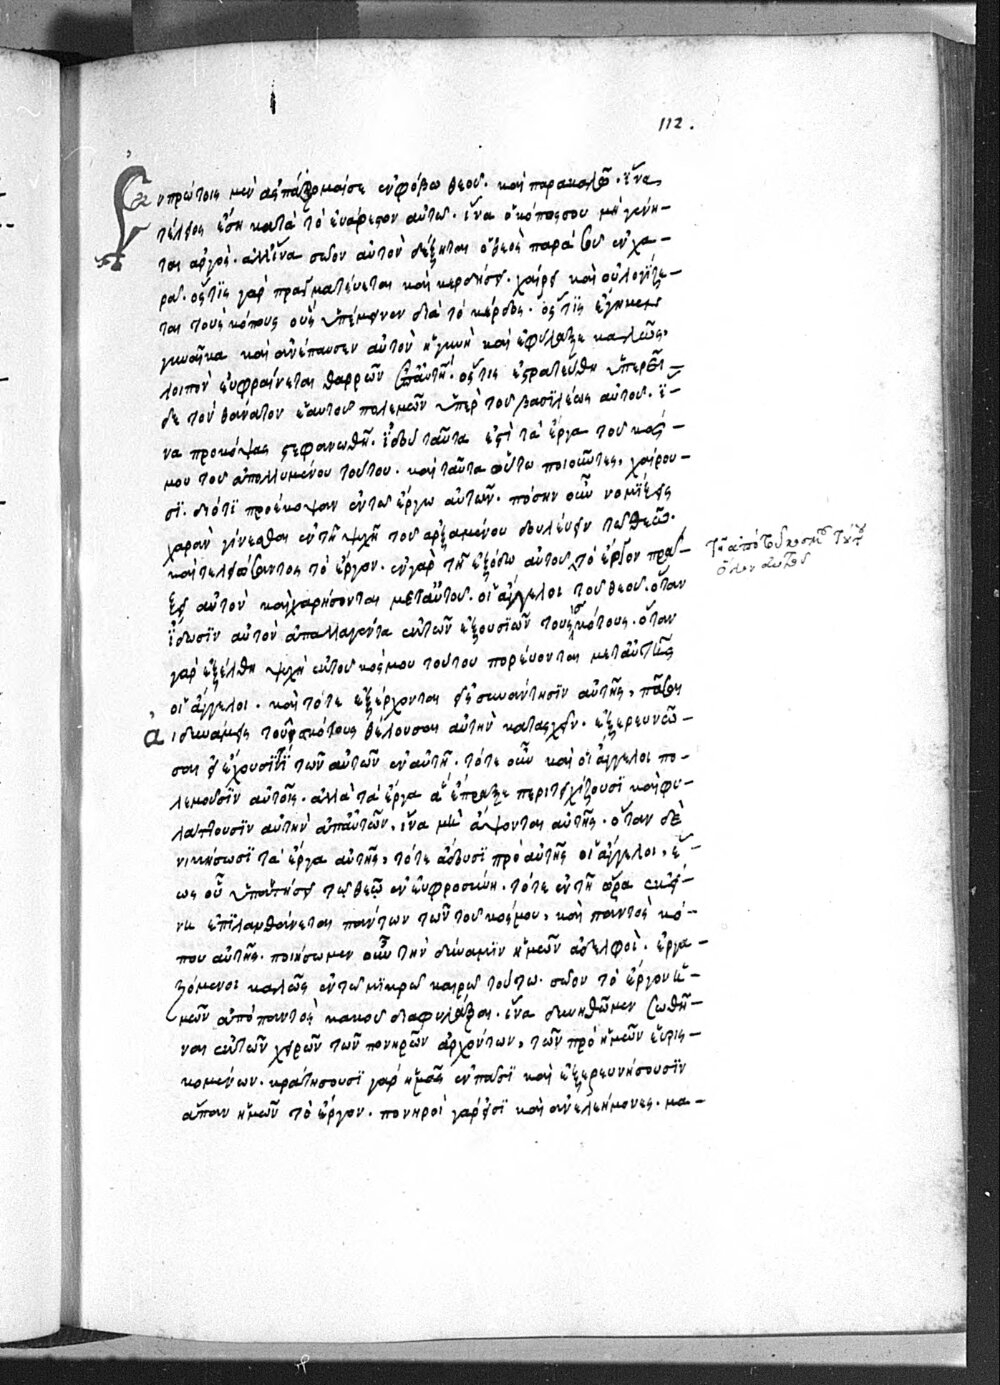 112.
Ἐν πρώτοις μὲν ἀσπάζομαί σε ἐν φόβω θεοῦ. καὶ παρακαλῶ. ἵνα
τέλειος ἔση κατὰ τὸ εὐάρεστον αὐτοῦ. ἵνα ὁ κόπος σου μὴ γένη-
ται ἀργός. ἀλλ' ἵνα σῶον αὐτὸν δέξηται ὁ θεὸς παρὰ σοῦ ἐν χα-
ρᾶ. ὅστις γὰρ πραγματεύεται καὶ κερδήσει. χαίρει καὶ οὐ λογίζε-
ται τοὺς κόπους οὓς ὑπέμεινεν διὰ τὸ κέρδος. ὅστις ἔγημεν
γυναῖκα καὶ ἀνέπαυσεν αὐτὸν ἡ γυνὴ καὶ ἐφύλαξε καλῶς.
λοιπὸν εὐφραίνεται θαρρῶν ἐπ' αὐτῆ. ὅστις ἐστρατεύθη ὑπερεῖ-
δε τὸν θάνατον ἑαυτοῦ πολεμῶν ὑπὲρ τοῦ βασιλέως αὐτοῦ. ἵ-
να προκόψας στεφανωθῆ. ἰδοὺ ταῦτα ἐστὶ τὰ ἔργα τοῦ κόσ-
μου τοῦ ἀπολλυμένου τούτου. καὶ ταῦτα οὕτω ποιοῦντες, χαίρου-
σι. διότι προέκοψαν ἐν τῶ ἔργω αὐτῶν. πόσην οὖν νομίζεις
χαρὰν γίνεσθαι ἐν τῆ ψυχῆ τοῦ ἀρξαμένου δουλεύειν τῶ θεῶ.
καὶ τελειώσαντος τὸ ἔργον. ἐν γὰρ τῆ ἐξόδω αὐτοῦ τὸ ἔργον πρα-
τῆ ἀπὸ τοῦ κοσμου τουτου
ὅλον αυτου
ξει αὐτὸν καὶ χαρήσονται μετ' αὐτοῦ. οἱ ἄγγελοι τοῦ θεοῦ. ὅταν
ἴδωσιν αὐτὸν ἀπαλλαγέντα ἐκ τῶν ἐξουσιῶν τοῦ σκότους. ὅταν
γὰρ ἐξέλθη ψυχὴ ἐκ τοῦ κόσμου τούτου πορεύονται μετ' αὐτῆς
οἱ ἄγγελοι. καὶ τότε ἐξέρχονται εἰς συνάντησιν αὐτῆς, πᾶσαι
αἱ δυνάμεις τοῦ σκότους θέλουσαι αὐτὴν κατασχεῖν. ἐξερευνῶ-
σαι εἰ ἔχουσί τι τῶν αὐτῶν ἐν αὐτῆ. τότε οὖν καὶ οἱ ἄγγελοι πο-
λεμοῦσιν αὐτοῖς. ἀλλὰ τὰ ἔργα ἃ ἔπραξε περιτειχίζουσι καὶ φυ-
λάττουσιν αὐτὴν ἀπ' αὐτῶν, ἵνα μὴ ἅψονται αὐτῆς. ὅταν δὲ
νικήσωσι τὰ ἔργα αὐτῆς, τότε ἄδουσι πρὸ αὐτῆς οἱ ἄγγελοι, ἕ-
ως οὗ ὑπαντήσει τῶ θεῶ ἐν εὐφροσύνη. τότε ἐν τῆ ὥρα ἐκεί-
νη ἐπιλανθάνεται πάντων τῶν τοῦ κόσμου, καὶ παντὸς κό-
που αὐτῆς. ποιήσωμεν οὖν τὴν δύναμιν ἡμῶν ἀδελφοί. ἐργα-
ζόμενοι καλῶς ἐν τῶ μικρῶ καιρῶ τούτω. σῶον τὸ ἔργον ἡ-
μῶν ἀπὸ παντὸς κακοῦ διαφυλάξαι. ἵνα δυνηθῶμεν σωθῆ-
ναι ἐκ τῶν χειρῶν τῶν πονηρῶν ἀρχόντων, τῶν πρὸ ἡμῶν εὑρισ-
κομένων. κρατήσουσι γὰρ ἡμᾶς ἐν πᾶσι καὶ ἐξερευνήσουσιν
ἅπαν ἡμῶν τὸ ἔργον. πονηροὶ γάρ εἰσι καὶ ἀνελεήμονες. μα-